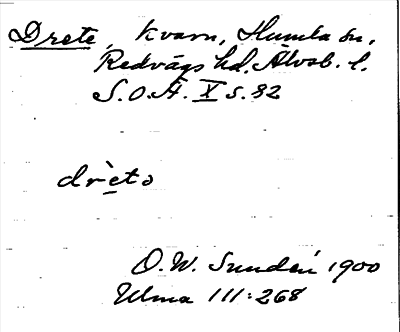 Drete, kvarn, Humla sn,
Redvägs hd, Älvsb. l.
S.O.Ä. X s. 82
drèto
O.W. Sundén 1900
Ulma 111:268